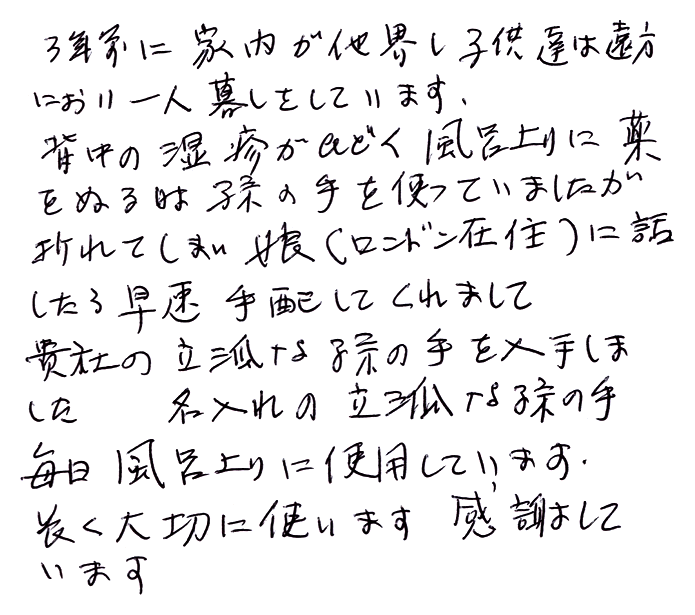 3年前に家内が他界し子供達は遠方
におり一人暮しをしています.
背中の湿疹がひどく風呂上りに薬
をぬる時孫の手を使っていましたが
折れてしまい娘(ロンドン在住)に話
したら早速手配してくれまして
貴社の立派な孫の手を入手しま
した 名入れの立派な孫の手
毎日風呂上りに使用しています.
長く大切に使います 感謝して
います